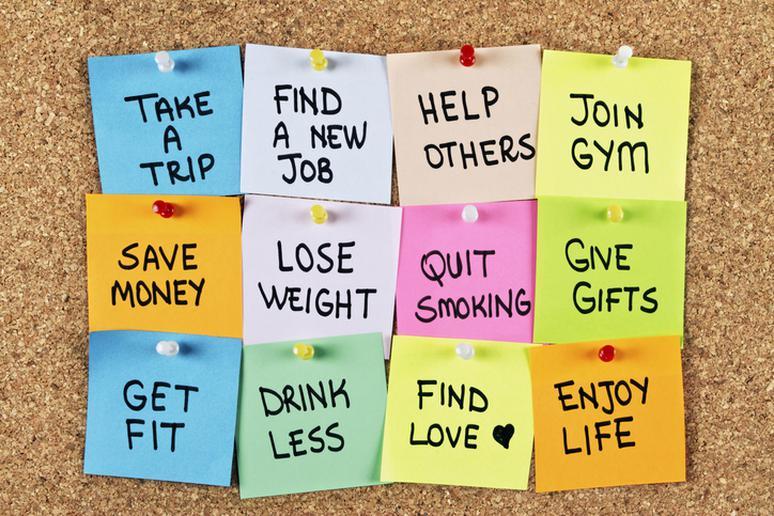 TAKE
A
TRIP
FIND
A NEW
JOB
HELP
OTHERS
JOIN
GYM
SAVE
MONEY
LOSE
WEIGHT
QUIT
SMOKING
GIVE
GIFTS
GET
FIT
DRINK
LESS
FIND
LOVE ♥
ENJOY
LIFE